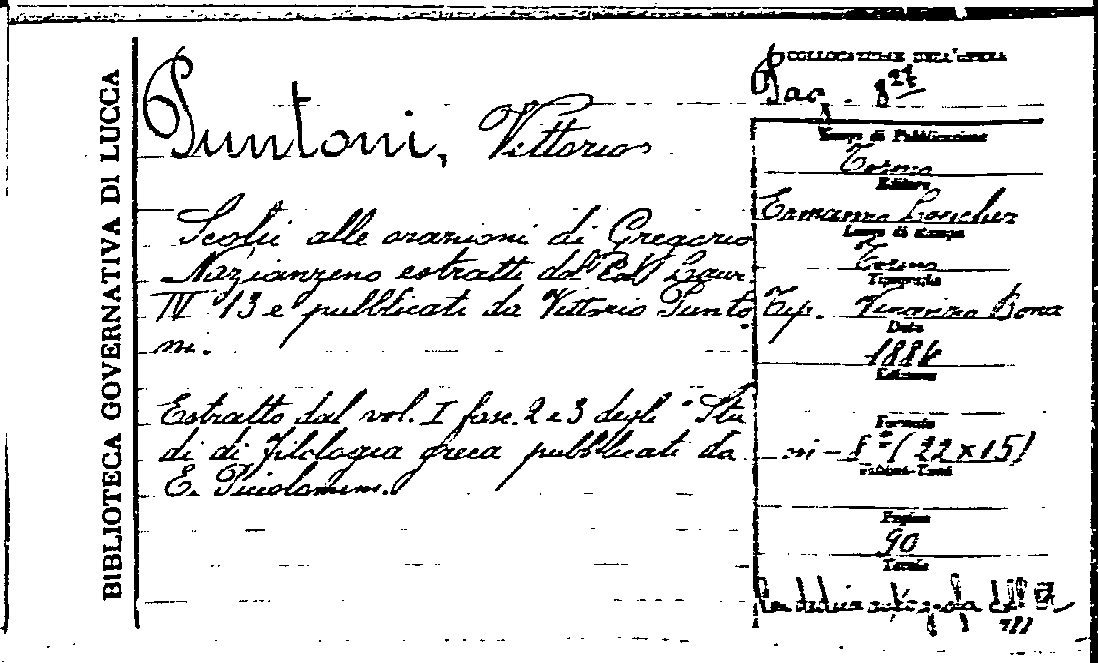 BIBLIOTECA GOVERNATIVA DI LUCCA
Puntoni, Vittorio
Scolii alle orazioni di Gregorio
Nazianzeno estratti dal Cod. Laur
IV 13 e pubblicati da Vittorio Punto
ni.
Estratto dal vol. I fasc. 2 e 3 degli "Stu
di di filologia greca pubblicati da
E. Piccolomini.
COLLOCAZIONE DELL'OPERA
Luogo di Pubblicazione
Torino
Editore
Ermanno Loescher
Luogo di stampa
Torino
Tipografia
Tip. Vincenzo Bona
Data
Edizione
Formato
in-8º (22x15)
Volumi-Tomi
Pagine
90
Tavole